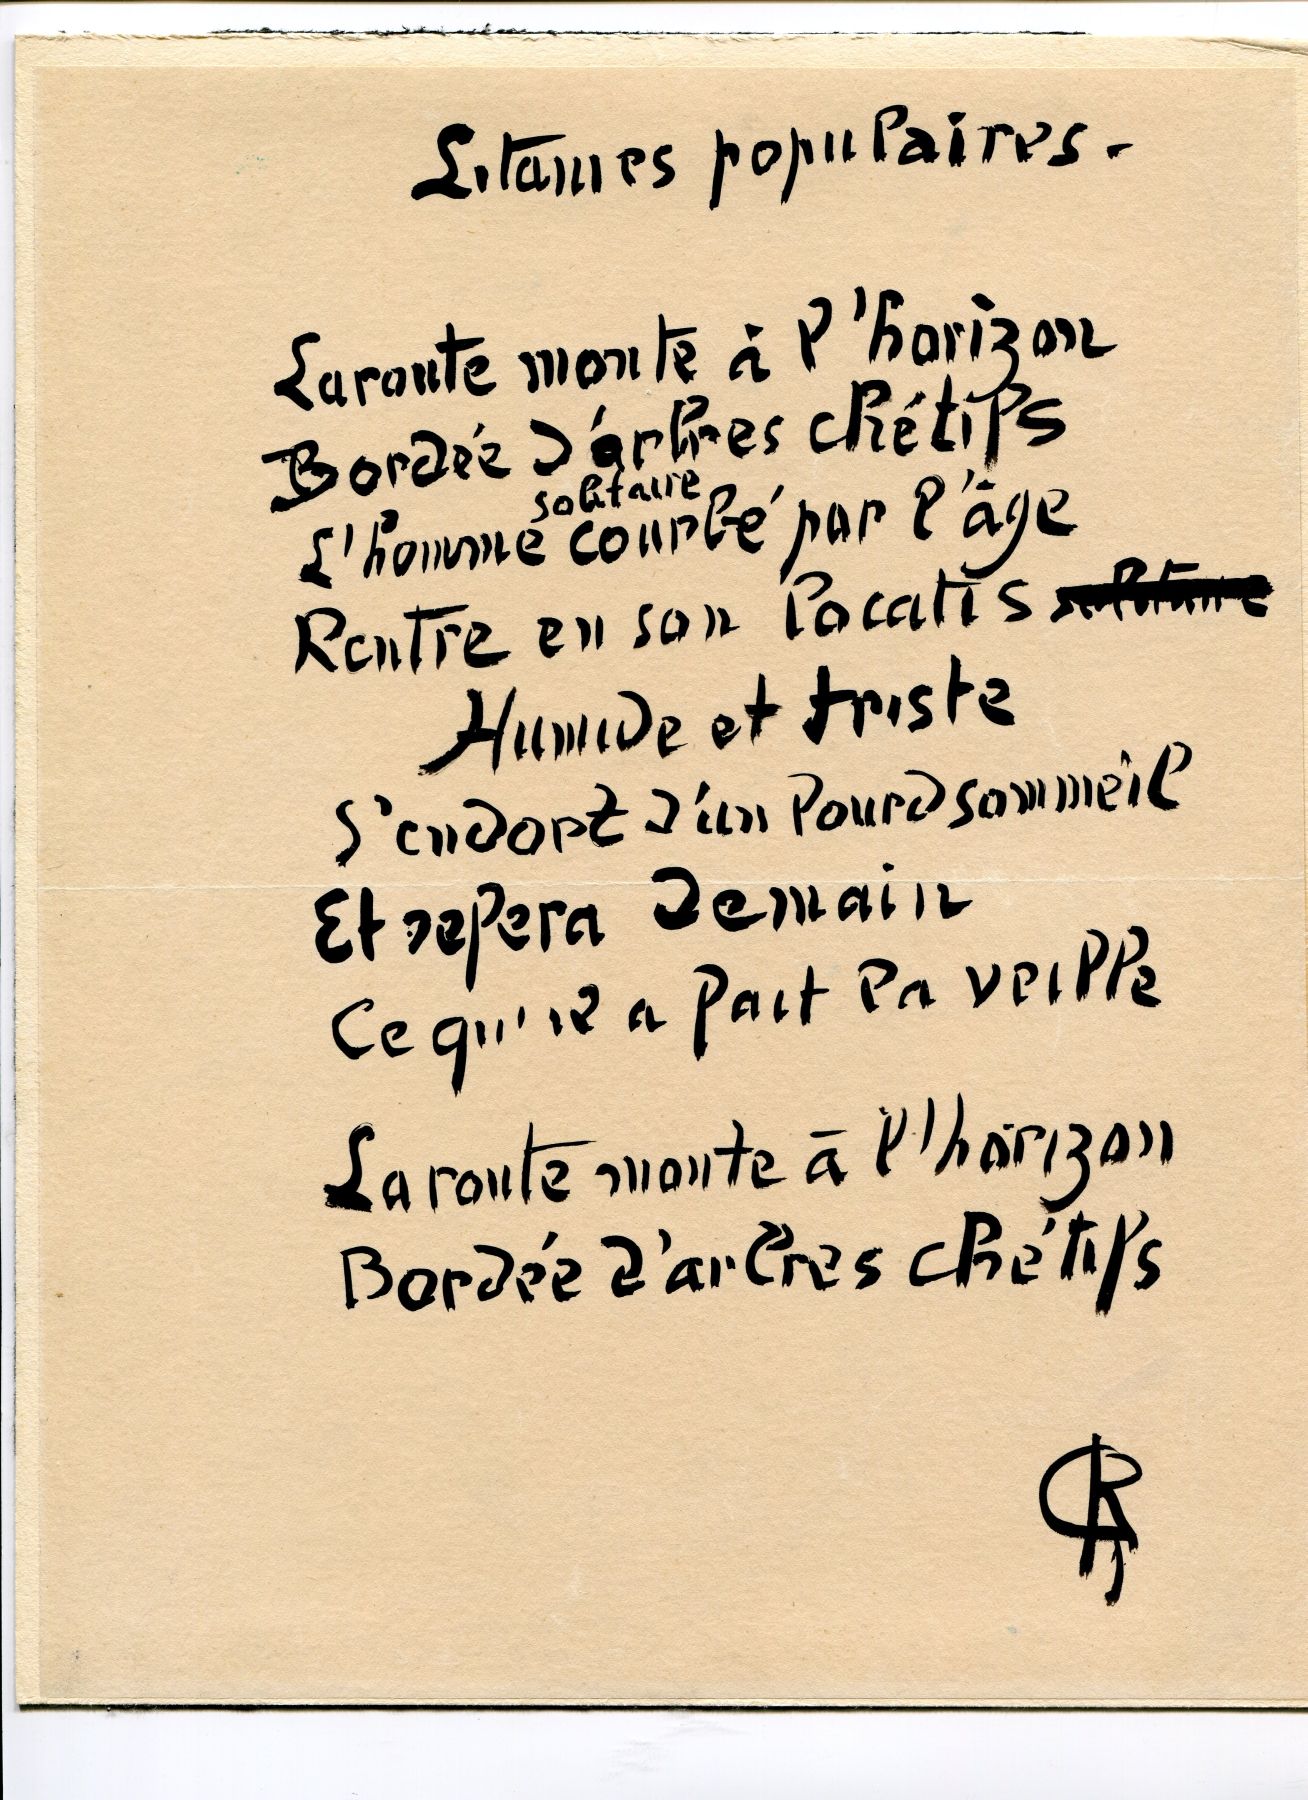 Litanies populaires -
La route monte à l'horizon
Bordée d'arbres chétifs
solitaire
L'homme courbé par l'âge
Rentre en son locatis solitaire
Humide et triste
S'endort d'un lourd sommeil
Et refera demain
Ce qu'il a fait la veille
La route monte à l'horizon
Bordée d'arbres chétifs